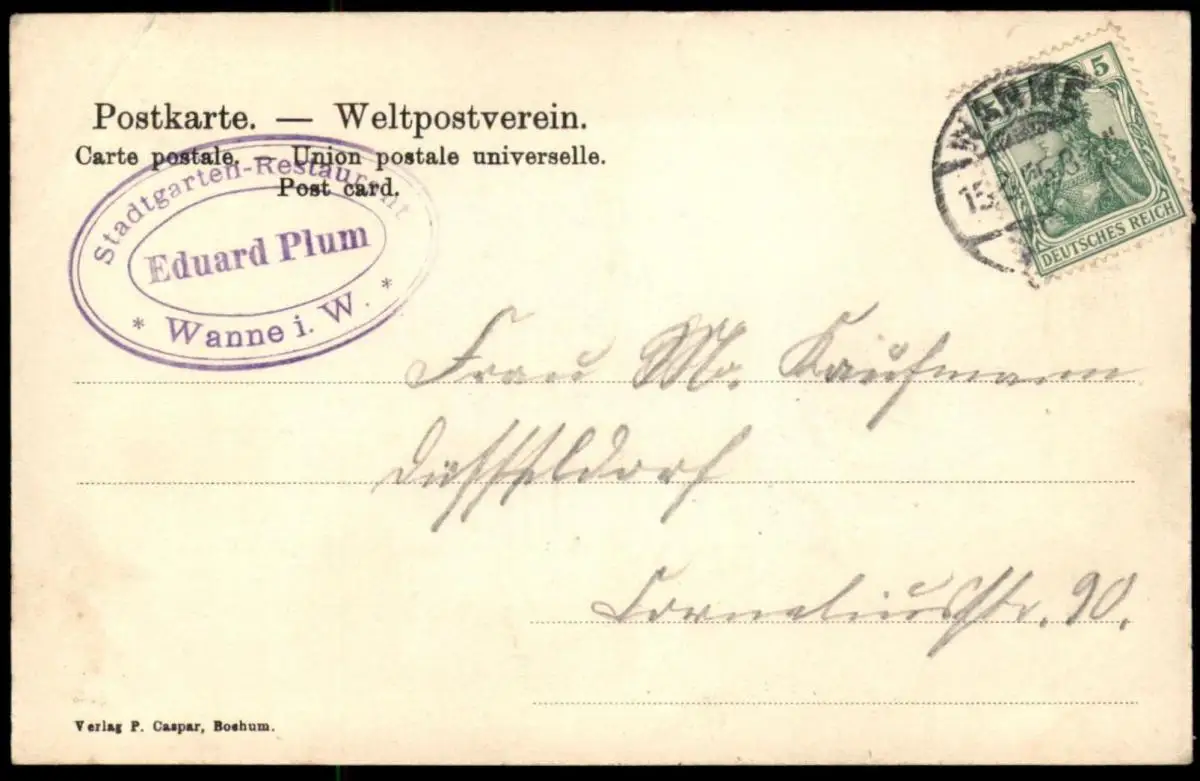 Postkarte. — Weltpostverein.
Carte postale. — Union postale universelle.
Post card.
Stadtgarten-Restaurant
Eduard Plum
* Wanne i. W. *
WANNE
15
5
DEUTSCHES REICH
Frau M. Kaufmann
Düsseldorf
Corneliusstr. 90.
Verlag P. Caspar, Bochum.